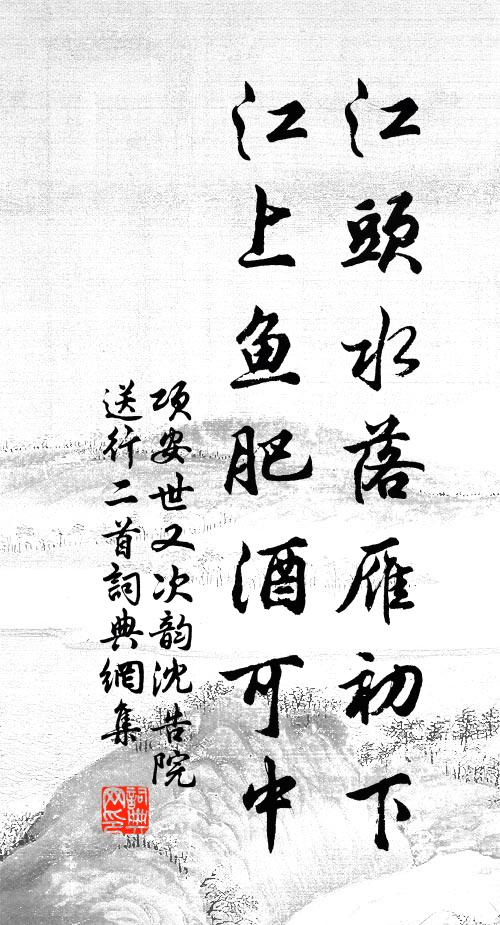 江頭水落雁初下
江上鱼肥酒可中
项安世又次韵沈告院
送行二首詞典網集
詞典
网印